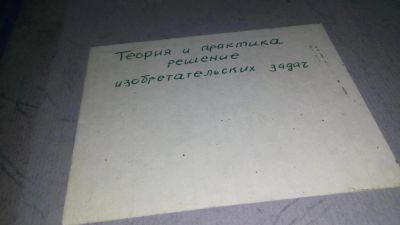 Теория и практика
решение
изобретательских задач